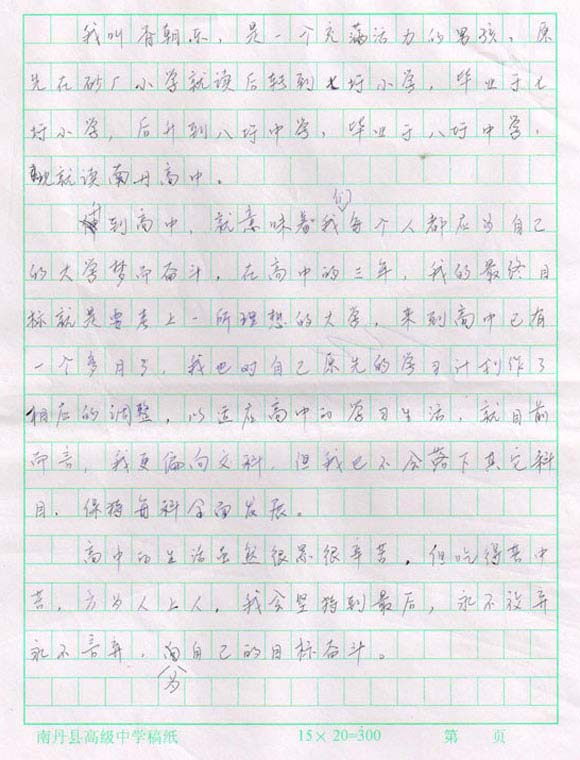 我叫香朝东，是一个充满活力的男孩，原
先在砂厂小学就读后转到七圩小学，毕业于七
圩小学，后升到八圩中学，毕业于八圩中学，
现就读南丹高中。
升到高中，就意味着我们每个人都应为自己
的大学梦而奋斗，在高中的三年，我的最终目
标就是要考上一所理想的大学，来到高中已有
一个多月了，我也对自己原先的学习计划作了
相应的调整，以适应高中的学习生活，就目前
而言，我更偏向文科，但我也不会落下其它科
目，保持每科全面发展。
高中的生活虽然很累很辛苦，但吃得苦中
苦，方为人上人，我会坚持到最后，永不放弃
永不言弃，为自己的目标奋斗。
南丹县高级中学稿纸 15×20=300 第 页